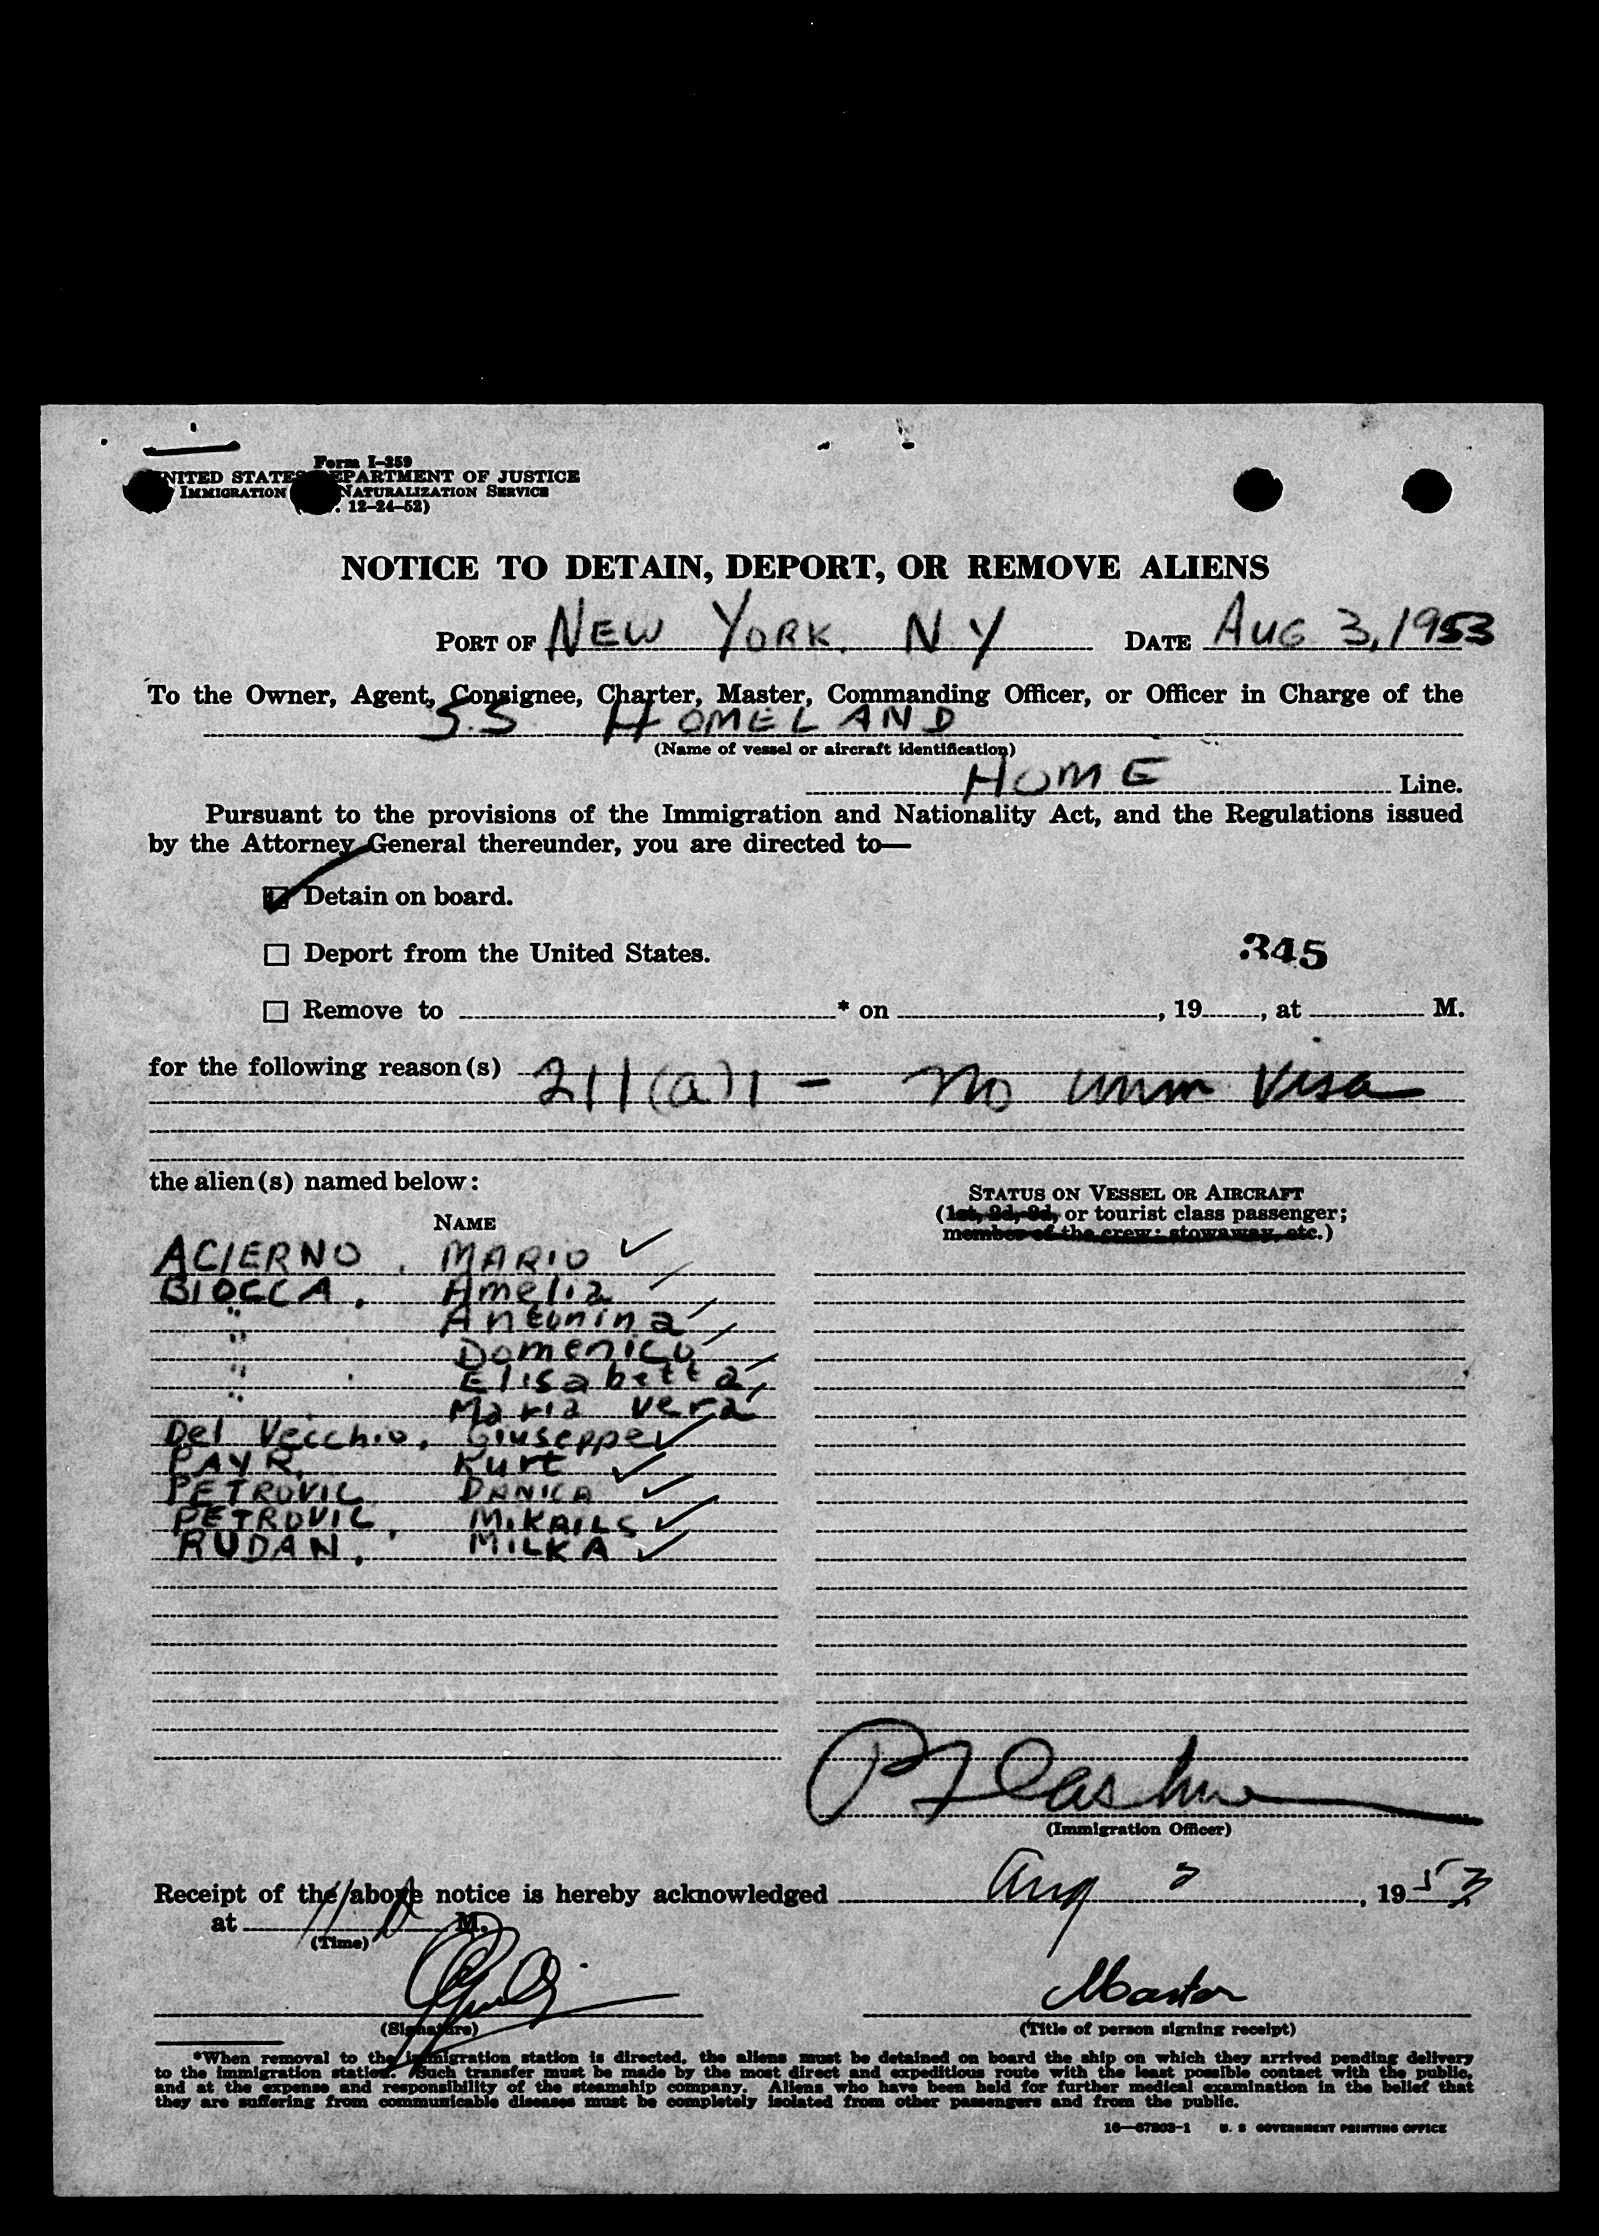 Form I-259
UNITED STATES DEPARTMENT OF JUSTICE
IMMIGRATION NATURALIZATION SERVICE
12-24-52)
NOTICE TO DETAIN, DEPORT, OR REMOVE ALIENS
PORT OF NEW YORK, NY DATE AUG 3, 1953
To the Owner, Agent, Consignee, Charter, Master, Commanding Officer, or Officer in Charge of the
S.S HOMELAND
(Name of vessel or aircraft identification)
HOME Line.
Pursuant to the provisions of the Immigration and Nationality Act, and the Regulations issued
by the Attorney General thereunder, you are directed to—
Detain on board.
Deport from the United States.
345
Remove to * on , 19 , at M.
for the following reason(s) 211(a)1 - no imm visa
the alien(s) named below:
STATUS ON VESSEL OR AIRCRAFT
(1st, 2d, 3d, or tourist class passenger;
member of the crew; stowaway, etc.)
NAME
ACIERNO, MARIO
BIOCCA, Amelia
" Antonina
" Domenico
" Elisabetta
" Maria Vera
Del Vecchio, Giuseppe
PAYR, Kurt
PETROVIC DANICA
PETROVIC, MIKAILS
RUDAN, MILKA
(Immigration Officer)
Receipt of the above notice is hereby acknowledged Aug 3, 1953
at 11 A M.
(Time)
Master
(Signature) (Title of person signing receipt)
*When removal to the immigration station is directed, the aliens must be detained on board the ship on which they arrived pending delivery
to the immigration station. Such transfer must be made by the most direct and expeditious route with the least possible contact with the public,
and at the expense and responsibility of the steamship company. Aliens who have been held for further medical examination in the belief that
they are suffering from communicable diseases must be completely isolated from other passengers and from the public.
16—67803-1 U. S GOVERNMENT PRINTING OFFICE